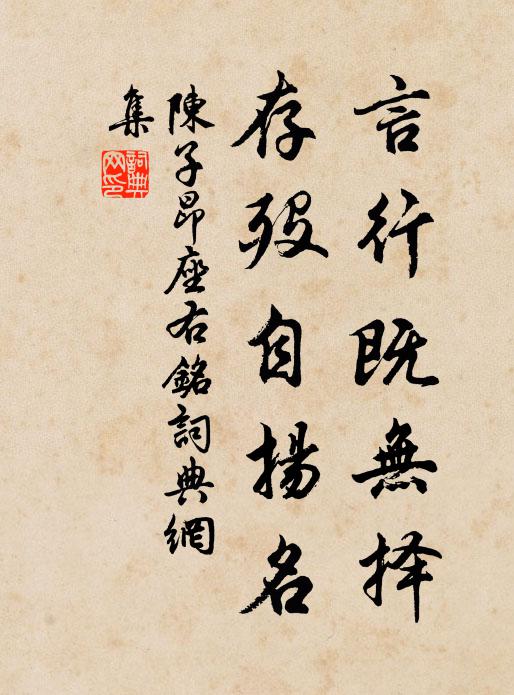 言行既無择
存殁自揚名
陳子昂座右銘詞典網
集
詞典网印